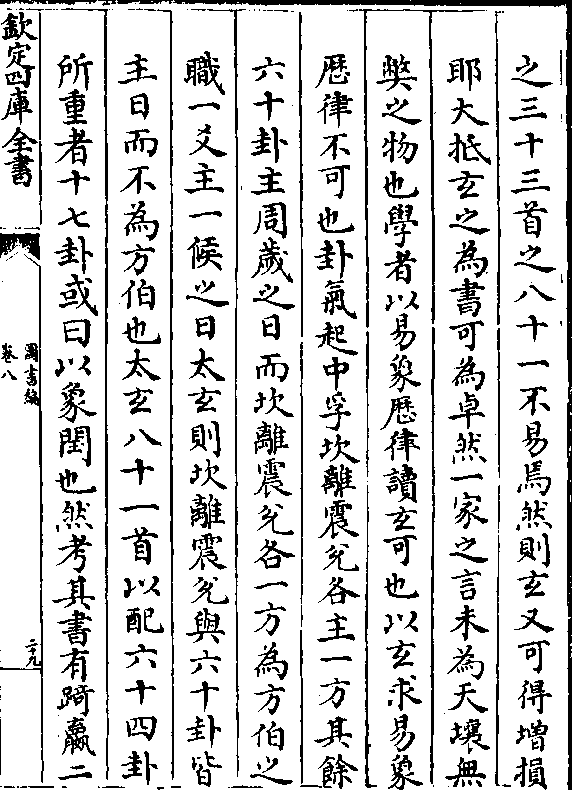 之三十三首之八十一不易焉然則玄又可得增損
耶大抵玄之為書可為卓然一家之言未為天壤無
獘之物也學者以易象歴律讀玄可也以玄求易象
歴律不可也卦氣起中孚坎離震兊各主一方其餘
六十卦主周歲之日而坎離震兊各一方為方伯之
職一爻主一候之日太玄則坎離震兊與六十卦皆
主日而不為方伯也太玄八十一首以配六十四卦
所重者十七卦或曰以象閏也然考其書有踦嬴二
欽定四庫全書
圖書編
卷八
二九